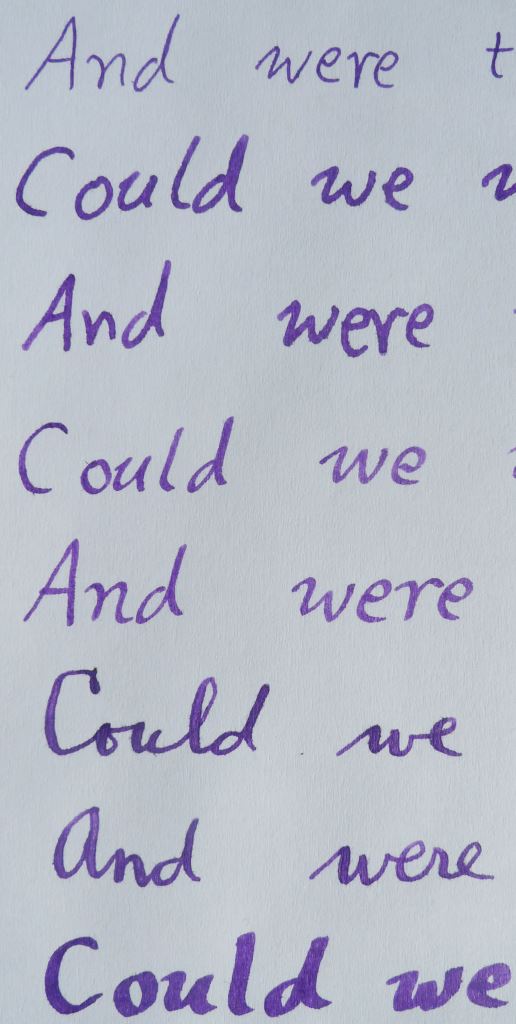 And were t
Could we
And were
Could we
And were
Could we
And were
Could we